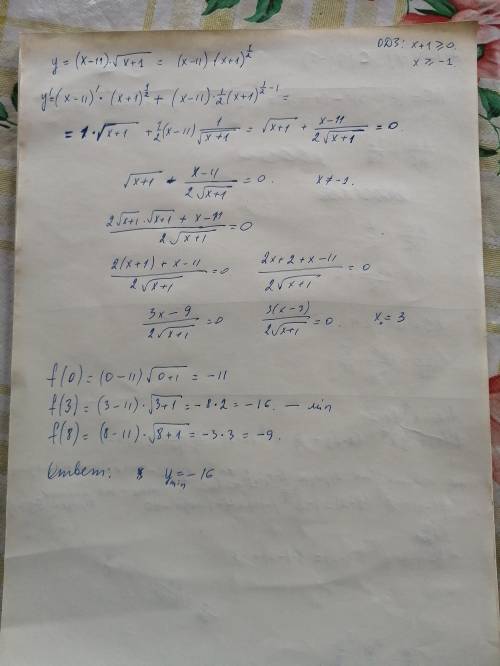 y = (x-11)·√x+1 = (x-11)·(x+1)^1/2
ОДЗ: x+1 ≥ 0.
x ≥ -1
y' = (x-11)'·(x+1)^1/2 + (x-11)·1/2(x+1)^1/2-1 =
= 1·√x+1 + 1/2(x-11) 1/√x+1 = √x+1 + x-11/2√x+1 = 0
√x+1 + x-11/2√x+1 = 0. x ≠ -1.
2√x+1·√x+1 + x-11/2√x+1 = 0
2(x+1)+x-11/2√x+1 = 0 2x+2+x-11/2√x+1 = 0
3x-9/2√x+1 = 0 3(x-3)/2√x+1 = 0. x₀ = 3
f(0) = (0-11)√0+1 = -11
f(3) = (3-11)·√3+1 = -8·2 = -16. — min
f(8) = (8-11)·√8+1 = -3·3 = -9.
Ответ: y min = -16